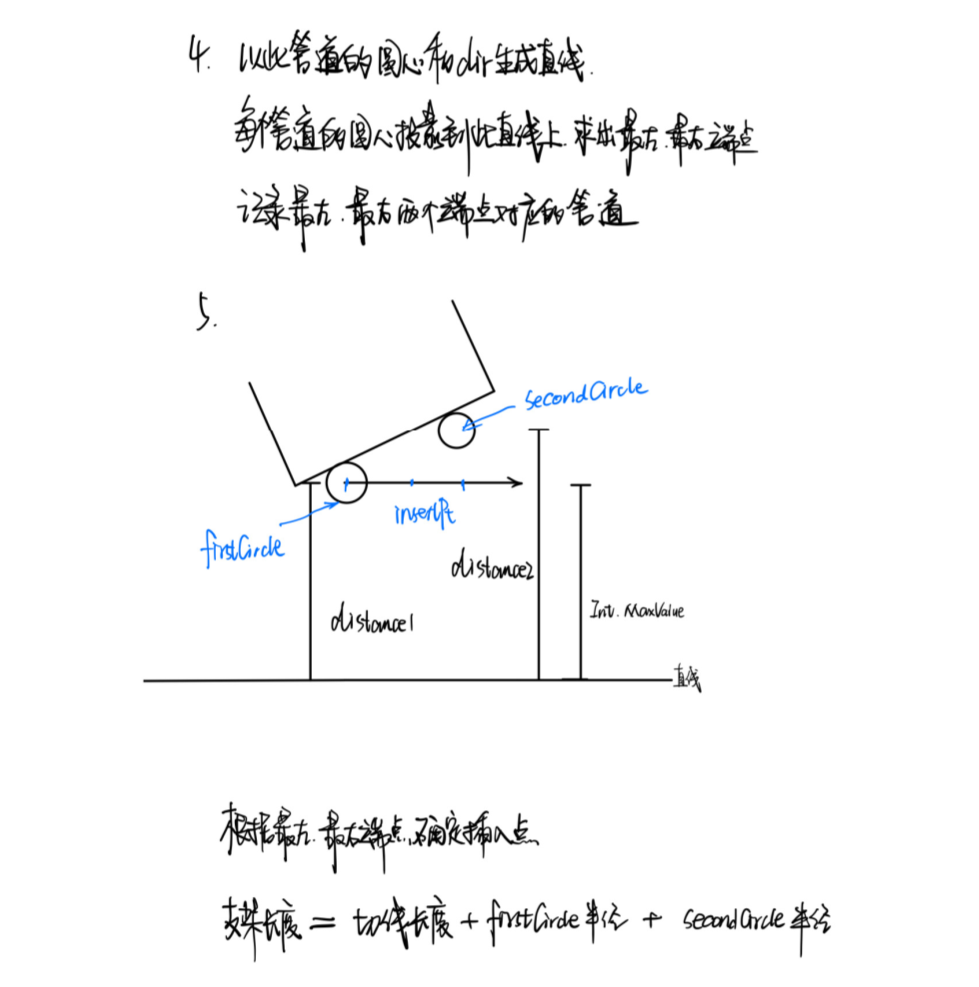 4. 以此管道的圆心和dir生成直线.
每个管道的圆心投影到此直线上.求出最左.最右端点
记录最左.最右两个端点对应的管道
5.
secondCircle
insertPt
firstCircle
distance2
distance1
Int.MaxValue
直线
根据最左.最右端点,确定插入点
支架长度 = 切线长度 + firstCircle半径 + secondCircle半径